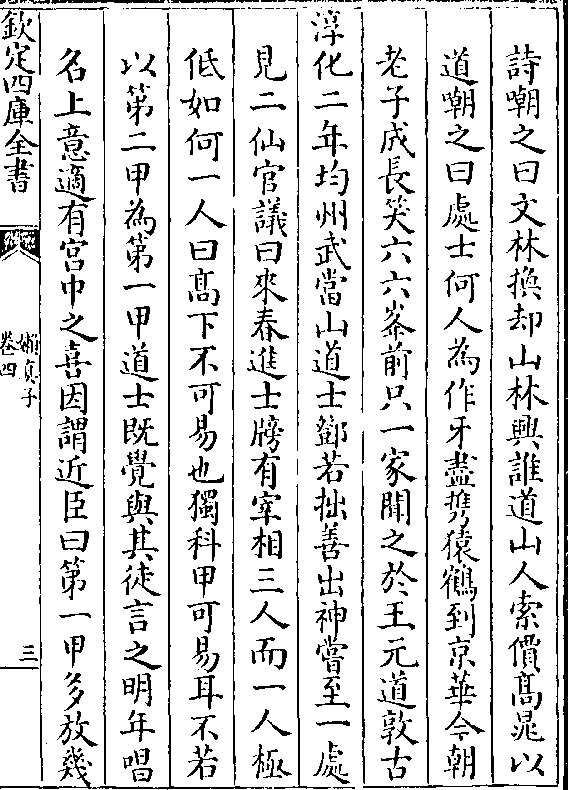 詩嘲之曰文林換却山林興誰道山人索價髙晁以
道嘲之曰處士何人為作牙盡携猿鶴到京華今朝
老子成長笑六六峯前只一家聞之於王元道敦古
淳化二年均州武當山道士鄧若拙善出神嘗至一處
見二仙官議曰來春進士牓有宰相三人而一人極
低如何一人曰髙下不可易也獨科甲可易耳不若
以第二甲為第一甲道士既覺與其徒言之明年唱
名上意適有宫中之喜因謂近臣曰第一甲多放幾
欽定四庫全書
嬾真子
卷四
三